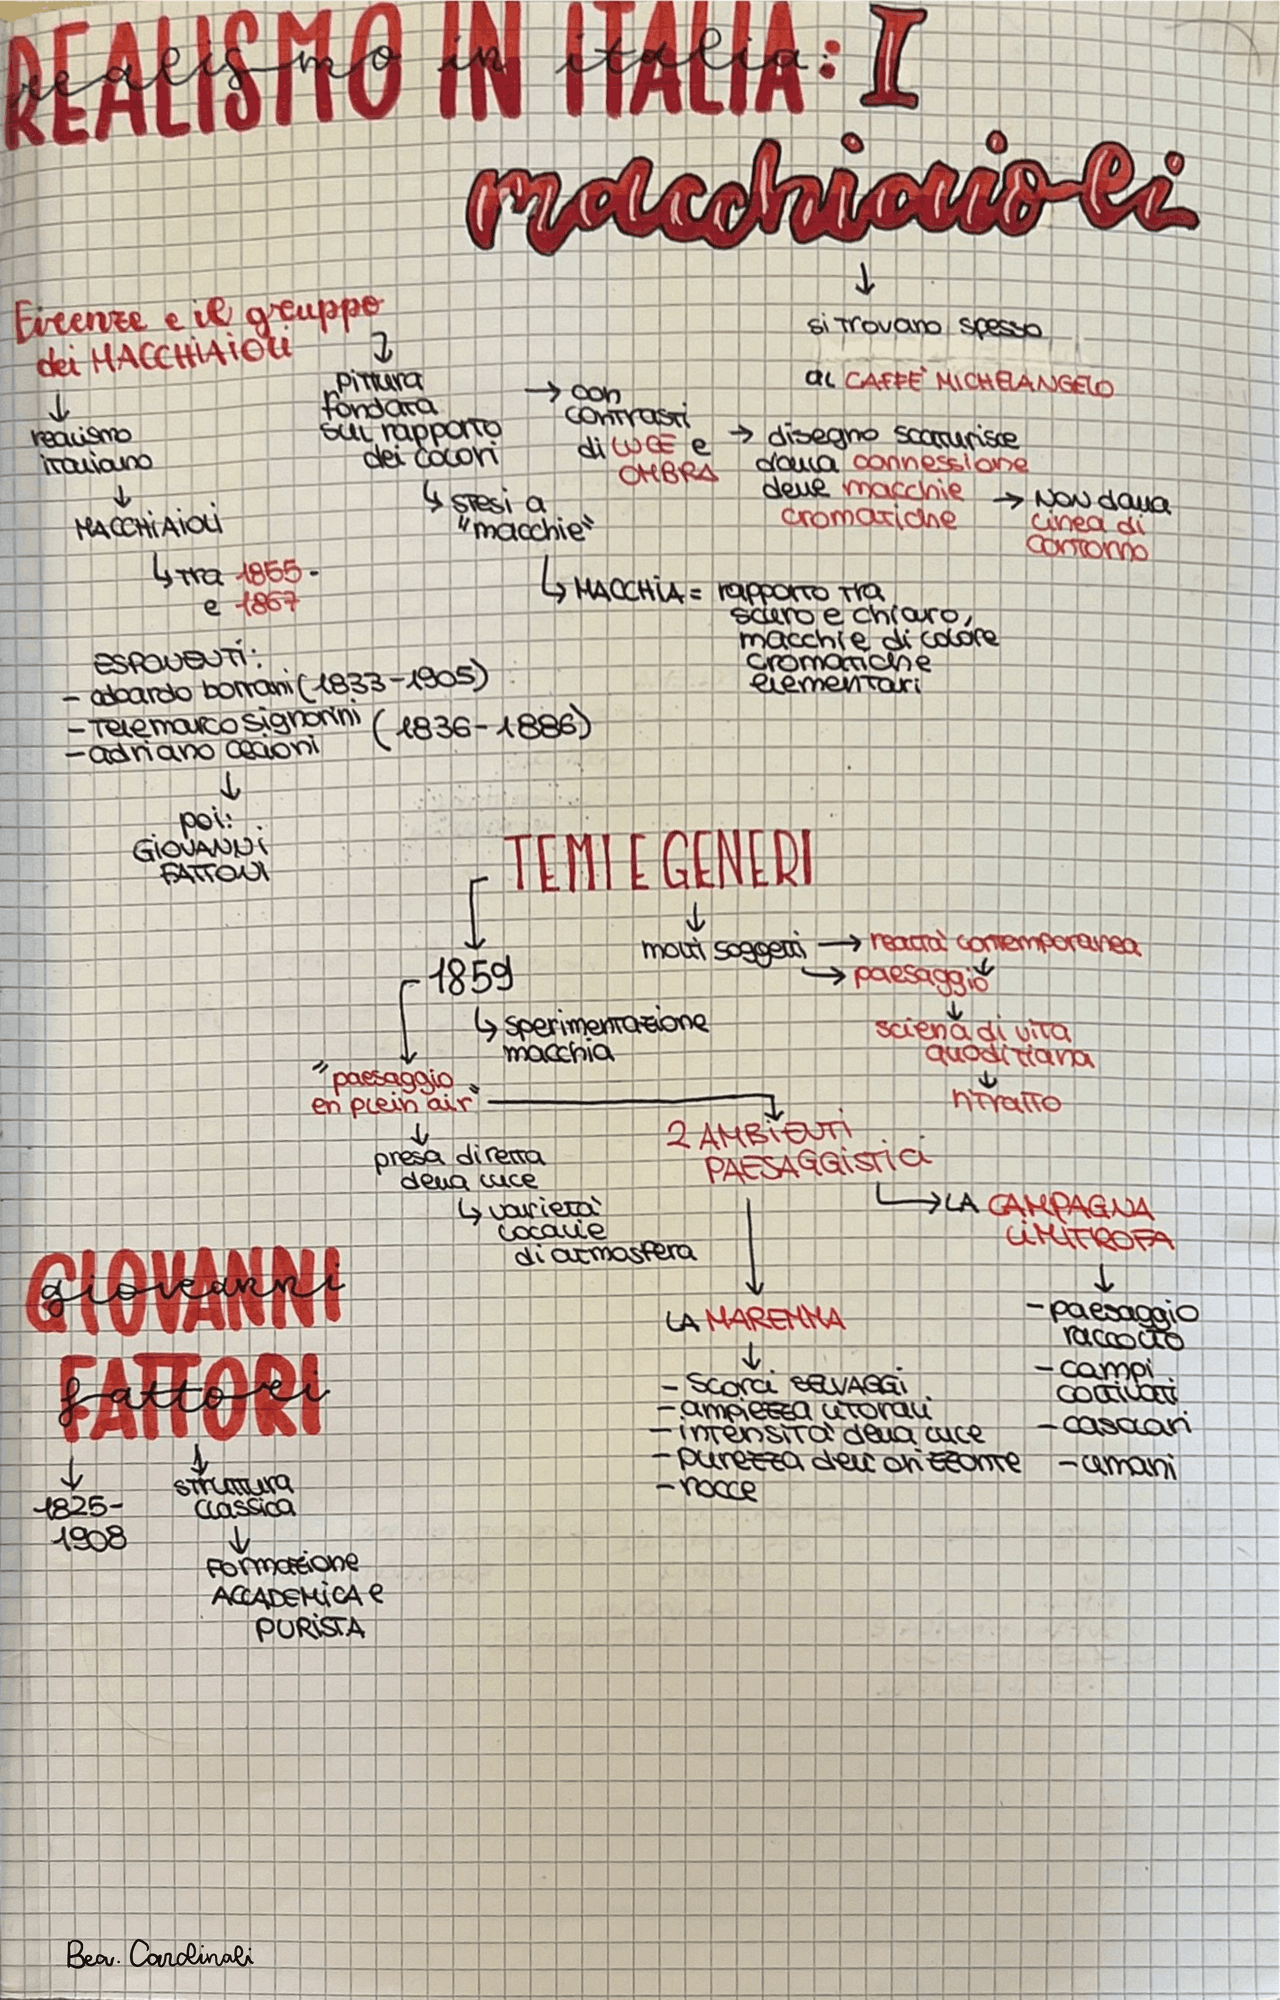 REALISMO IN ITALIA: I
realismo in italia:
macchiaioli
si trovano spesso
al CAFFÈ MICHELANGELO
Firenze e il gruppo
dei MACCHIAIOLI
realismo
italiano
MACCHIAIOLI
tra 1855-
e 1867
pittura
fondata
sul rapporto
dei colori
stesi a
"macchie"
con
contrasti
di LUCE e
OMBRA
disegno scaturisce
dalla connessione
delle macchie
cromatiche
NON dalla
linea di
contorno
MACCHIA = rapporto tra
scuro e chiaro,
macchie di colore
cromatiche
elementari
ESPONENTI:
- odoardo borrani (1833-1905)
- Telemarco signorini (1836-1886)
- adriano cecioni
poi:
GIOVANNI
FATTOUI
TEMI E GENERI
1859
sperimentazione
macchia
molti soggetti → realtà contemporanea
→ paesaggio
sciena di vita
quoditiana
ritratto
"paesaggio
en plein air"
presa diretta
della luce
varietà
locali e
di atmosfera
2 AMBIENTI
PAESAGGISTICI
LA CAMPAGNA
LIMITROFA
- paesaggio
raccolto
- campi
coltivati
- casolari
- umani
LA MAREMMA
- scorci SELVAGGI
- ampiezza litorali
- intensità della luce
- purezza dell'orizzonte
- rocce
GIOVANNI
giovanni
FATTORI
fattori
1825-
1908
struttura
classica
Formazione
ACCADEMICA e
PURISTA
Bea. Cardinali